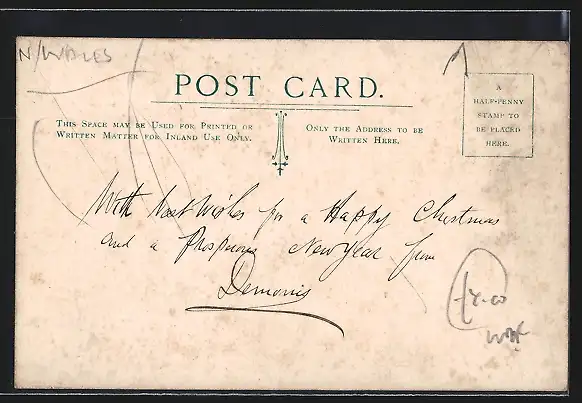 N/WALES
POST CARD.
THIS SPACE MAY BE USED FOR PRINTED OR
WRITTEN MATTER FOR INLAND USE ONLY.
ONLY THE ADDRESS TO BE
WRITTEN HERE.
A
HALF-PENNY
STAMP TO
BE PLACED
HERE.
With best Wishes for a Happy Christmas
and a Prosperous New Year from